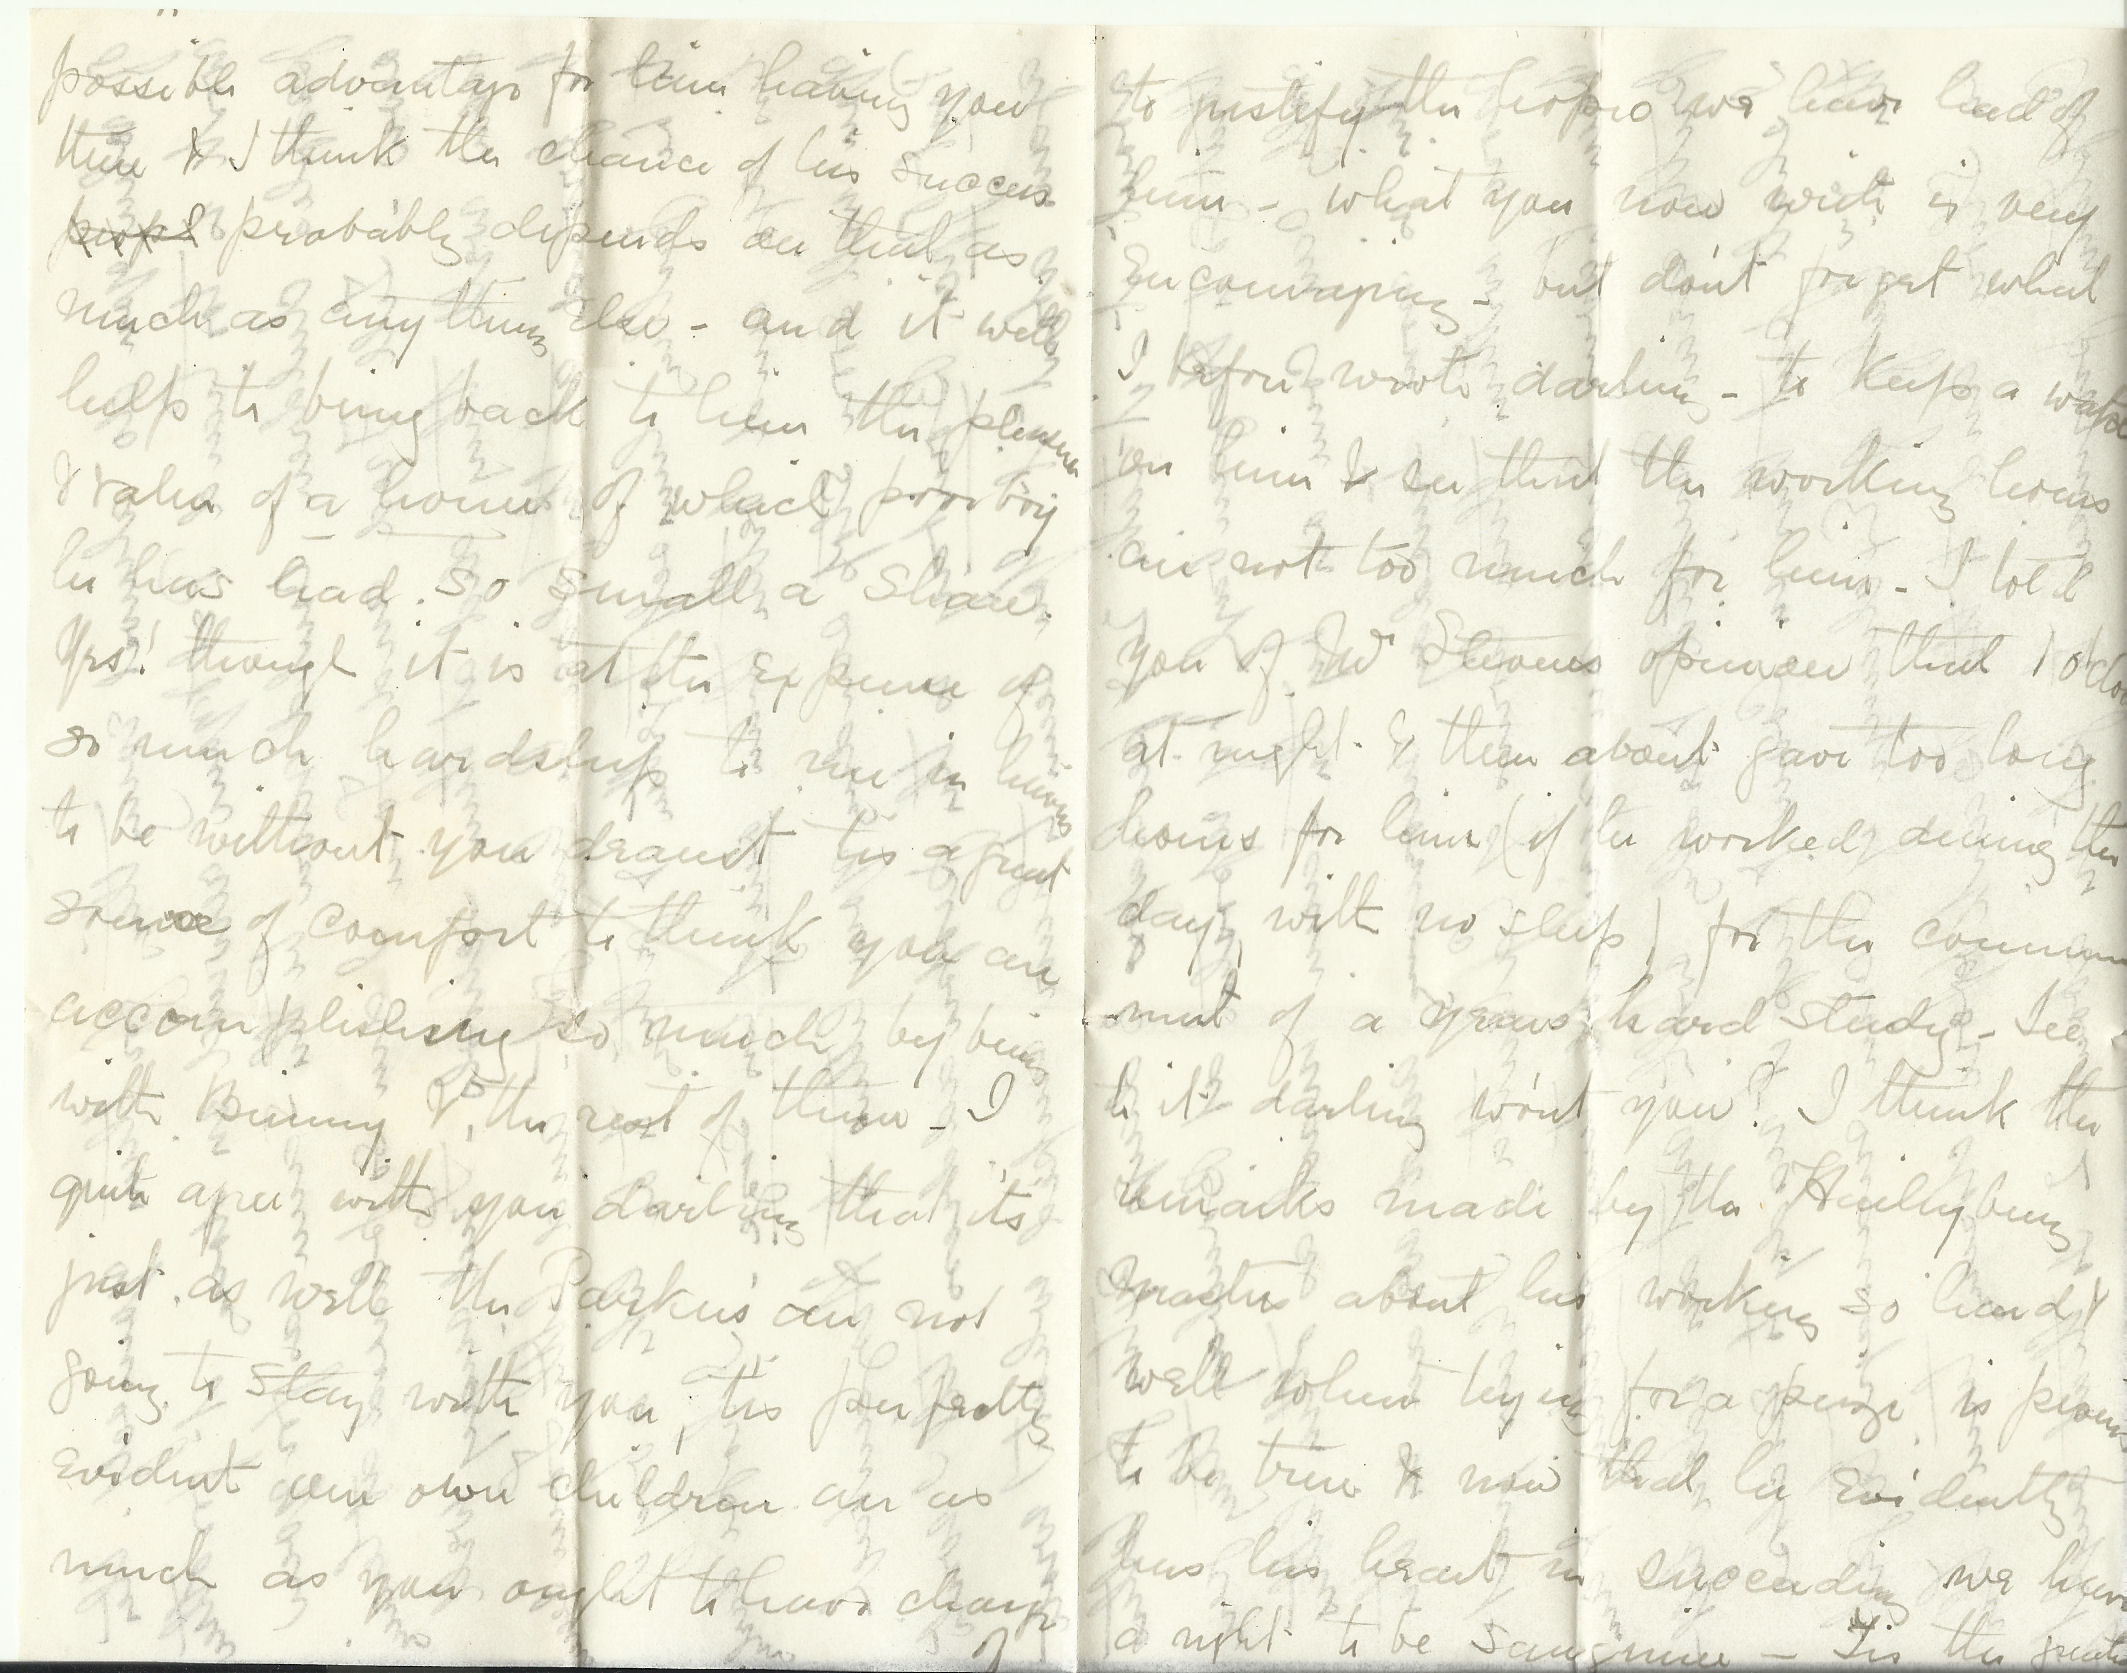 possible advantage for him having you
there & I think the chance of his success
probably depends on that as
much as anything else - and it will
help to bring back to him the pleasure
& value of a home of which poor boy
he has had so small a share.
Yes! though it is at the expense of
so much hardship to me in having
to be without you dearest tis a great
source of comfort to think you are
accomplishing so much by being
with Binny & the rest of them - I
quite agree with you darling that its
just as well the Parkers are not
going to stay with you, tis perfectly
evident our own children are as
much as you ought to have charge
of
to justify the hopes we have had of
him - what you now write is very
encouraging - but don't forget what
I before wrote darling - to keep a watch
on him & see that the working hours
are not too much for him - I told
you of Mr Stevens opinion that 1 o'clo
at night & then about gave too long
hours for him (if he worked during the
day, with no sleep) for the commence
-ment of a years hard study - See
to it darling won't you? I think the
remarks made by the Haileybury
master about his working so hard &
well when trying for a prize is proven
to be true & now that he evidently
has his heart in suceeding we have
a right to be sanguine - Tis the